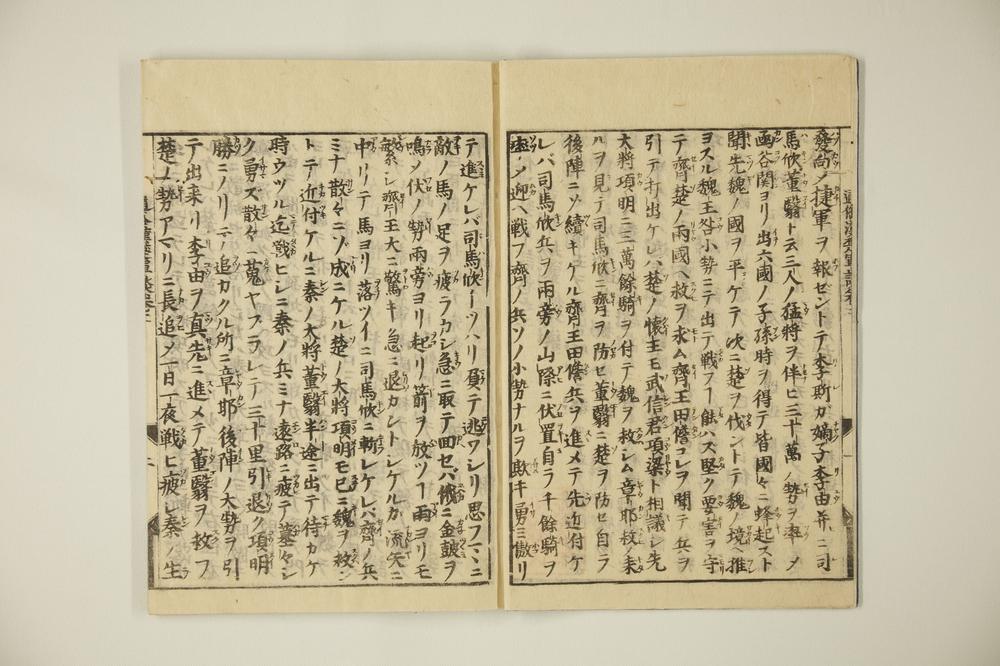 發向メ捷軍ヲ報ゼントテ李斯ガ嫡子李由并ニ司
馬欣董翳ト云三人ノ猛將ヲ伴ヒ三十萬ノ勢ヲ率メ
函谷関ヨリ出六國ノ子孫時ヲ得テ皆國々ニ蜂起スト
聞先魏ノ國ヲ平ケテ次ニ楚ヲ伐ントテ魏ノ境ヘ推
ヨスル魏王咎小勢ニテ出テ戦フ能ハズ堅ク要害ヲ守
テ齊楚ノ兩國ヘ救ヲ求ム齊王田儋コレヲ聞テ兵ヲ
引テ打出ケレバ楚ノ懐王モ武信君項梁ト相議シ先
大將項明ニ二萬餘騎ヲ付テ魏ヲ救シム章邯救ノ来
ルヲ見テ司馬欣ニ齊ヲ防セ董翳ニ楚ヲ防セ自ラ
後陣ニソ續キケル齊王田儋兵ヲ進メテ先近付ケ
レバ司馬欣兵ヲ兩旁ノ山際ニ伏置自ラ千餘騎ヲ
メ迎ヘ戦フ齊ノ兵ソノ小勢ナルヲ欺キ勇ミ傲リ
テ進ケレバ司馬欣イツハリ負テ逃ワシリ思フマヽニ
敵ノ馬ノ足ヲ疲ラカシ急ニ取テ回セバ俄ニ金皷ヲ
鳴メ伏ノ勢兩旁ヨリ起リ箭ヲ放ツ雨ヨリモ
繁シ齊王大ニ驚キ急ニ退カントシケルガ流矢ニ
中リテ馬ヨリ落ツイニ司馬欣ニ斬レケレバ齊ノ兵
ミナ散々ニゾ成ニケル楚ノ大將項明モ已ニ魏ヲ救ン
トテ近付ケルニ秦ノ大將董翳半途ニ出テ待カケ
時ウツル迄戦ヒシニ秦ノ兵ミナ遠路ニ疲テ甚々シ
ク勇ズ散々ニ蒐ヤブラレテ三十里引退ク項明
勝ニノリテ追カクル所ニ章邯後陣ノ大勢ヲ引
テ出来リ李由ヲ真先ニ進メテ董翳ヲ救フ
楚ノ勢アマリニ長追メ一日一夜戦ヒ疲レ秦ノ生